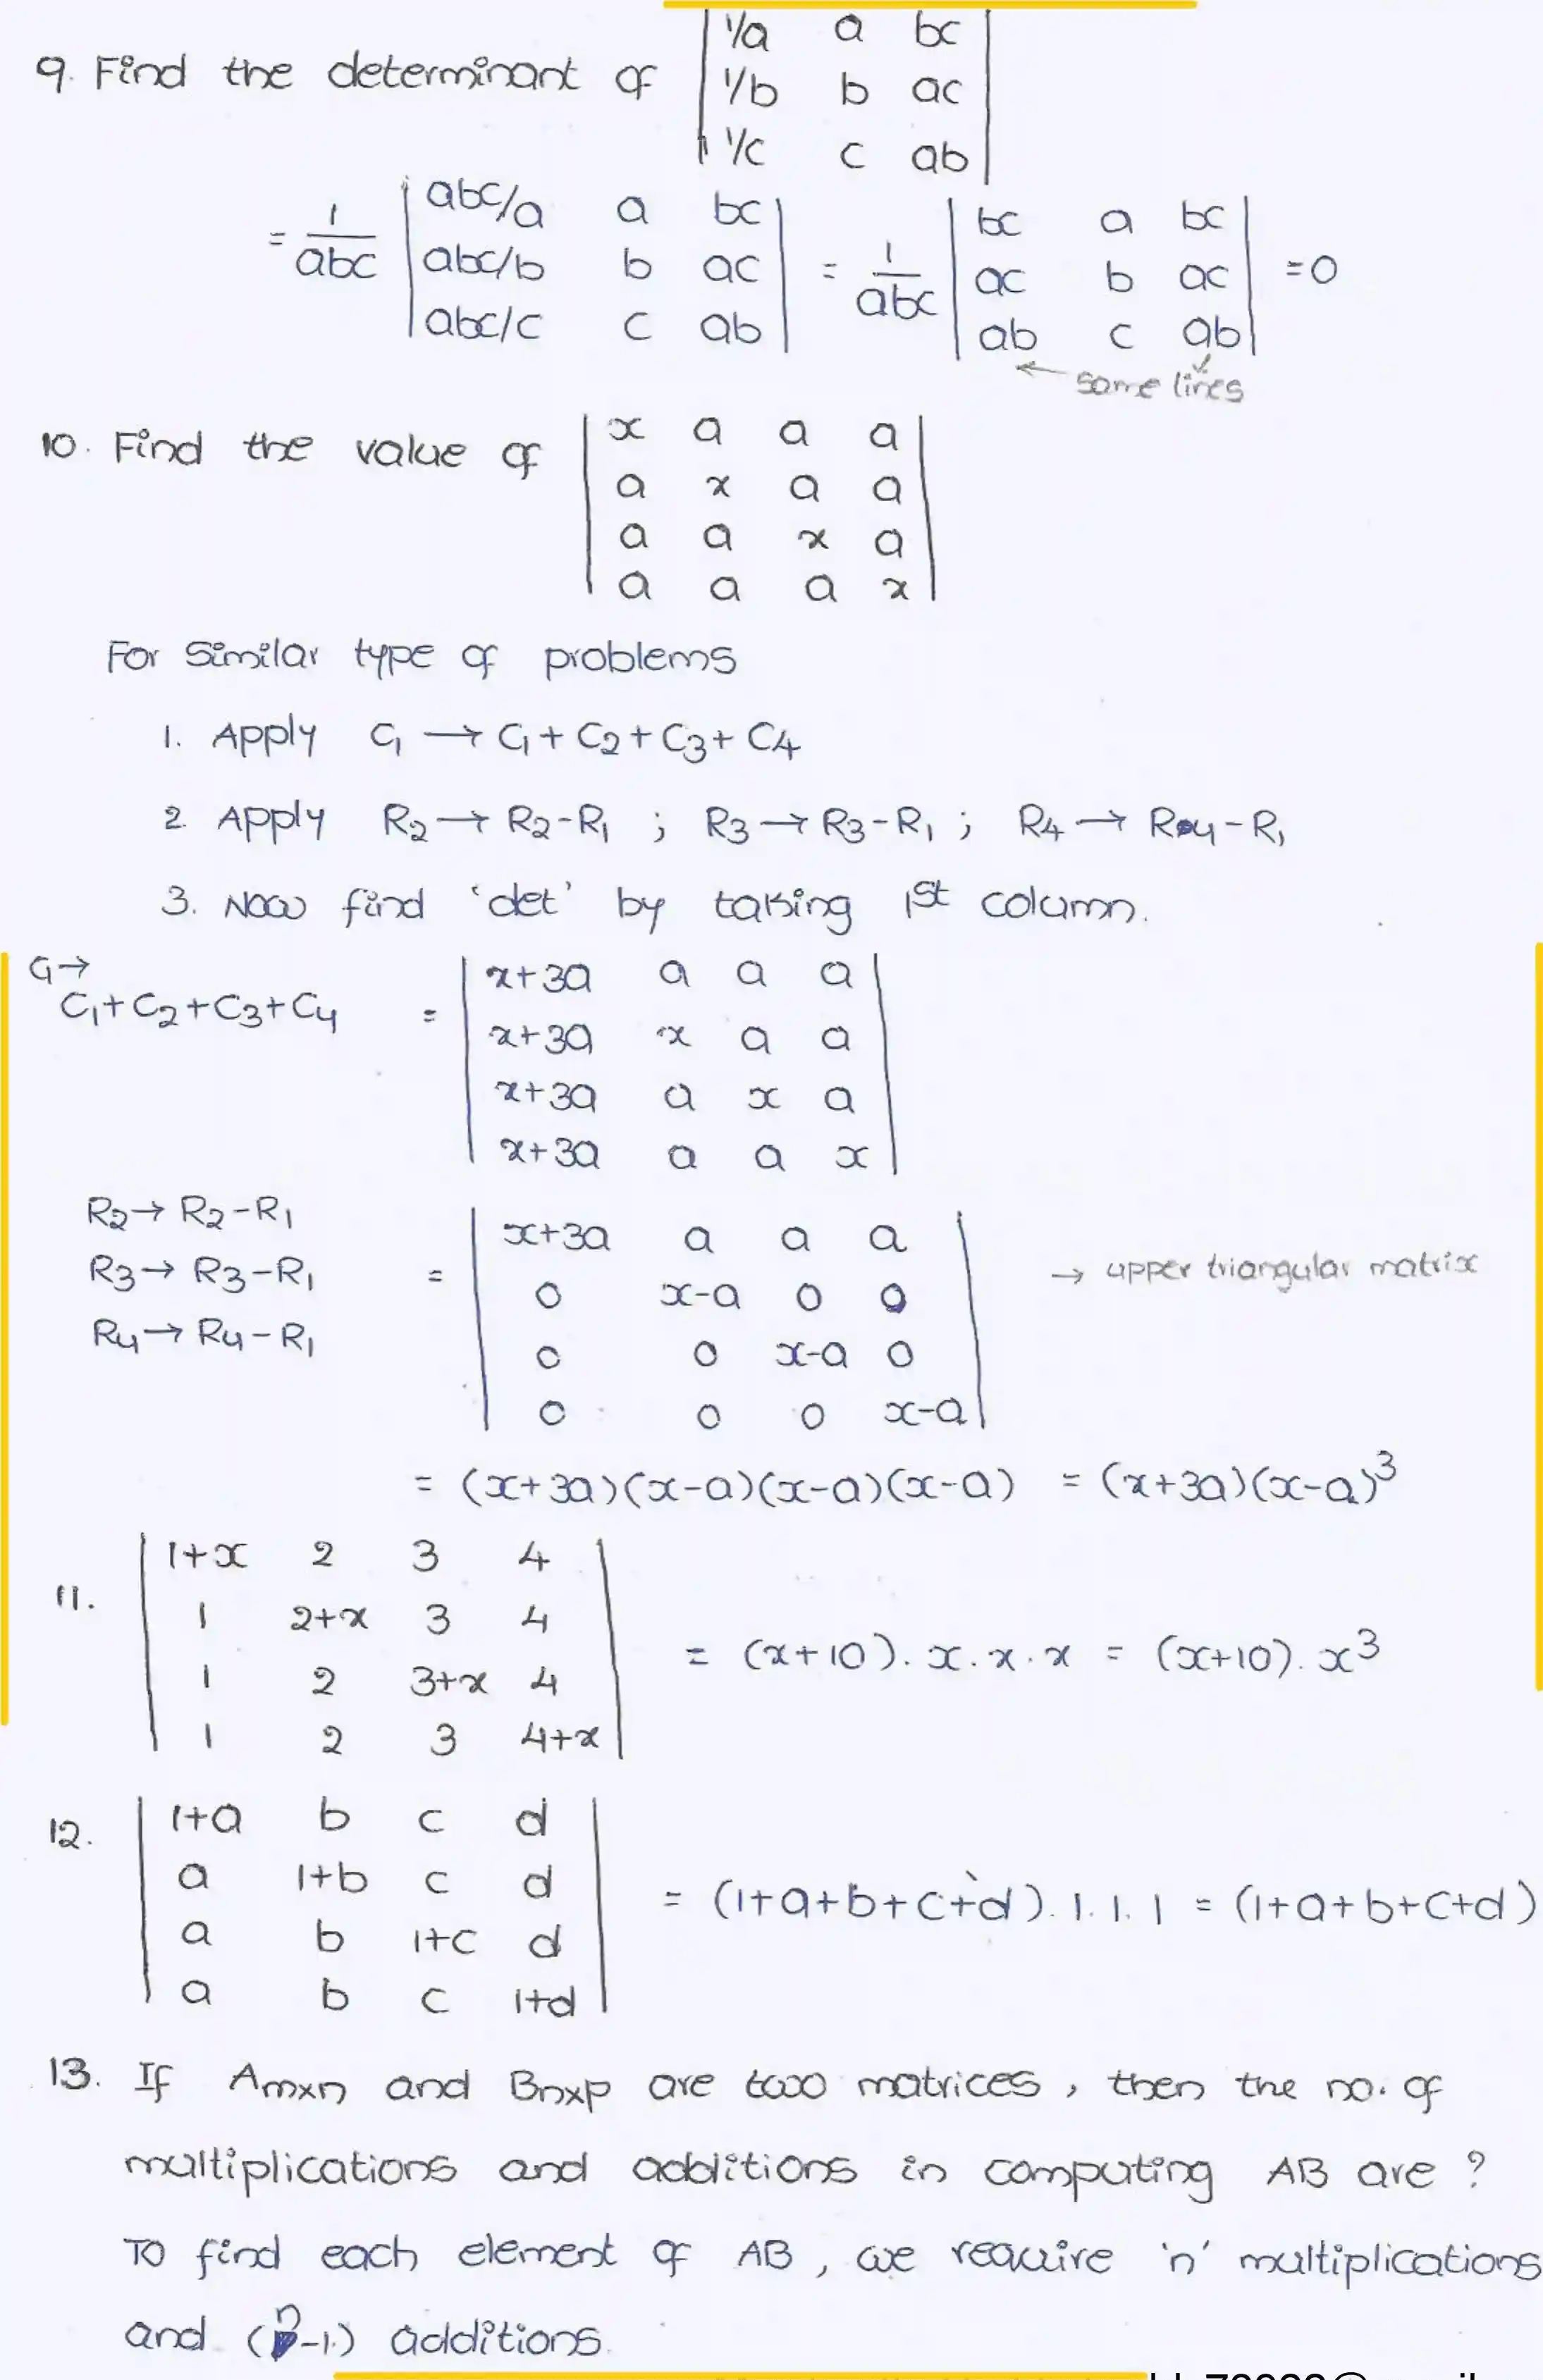 9. Find the determinant of | 1/a a bc |
| 1/b b ac |
| 1/c c ab |
= 1/abc | abc/a a bc | = 1/abc | bc a bc | = 0
| abc/b b ac | | ac b ac |
| abc/c c ab | | ab c ab |
← same lines
10. Find the value of | x a a a |
| a x a a |
| a a x a |
| a a a x |
For Similar type of problems
1. Apply C1 → C1 + C2 + C3 + C4
2. Apply R2 → R2-R1 ; R3 → R3-R1 ; R4 → R4-R1
3. Now find 'det' by taking 1st column.
C1→
C1+C2+C3+C4 = | x+3a a a a |
| x+3a x a a |
| x+3a a x a |
| x+3a a a x |
R2→ R2-R1 | x+3a a a a |
R3→ R3-R1 = | 0 x-a 0 0 | → upper triangular matrix
R4→ R4-R1 | 0 0 x-a 0 |
| 0 0 0 x-a |
= (x+3a)(x-a)(x-a)(x-a) = (x+3a)(x-a)³
11. | 1+x 2 3 4 |
| 1 2+x 3 4 | = (x+10).x.x.x = (x+10).x³
| 1 2 3+x 4 |
| 1 2 3 4+x |
12. | 1+a b c d |
| a 1+b c d | = (1+a+b+c+d).1.1.1 = (1+a+b+c+d)
| a b 1+c d |
| a b c 1+d |
13. If Amxn and Bnxp are two matrices, then the no. of
multiplications and additions in computing AB are ?
To find each element of AB, we require 'n' multiplications
and (n-1) additions.